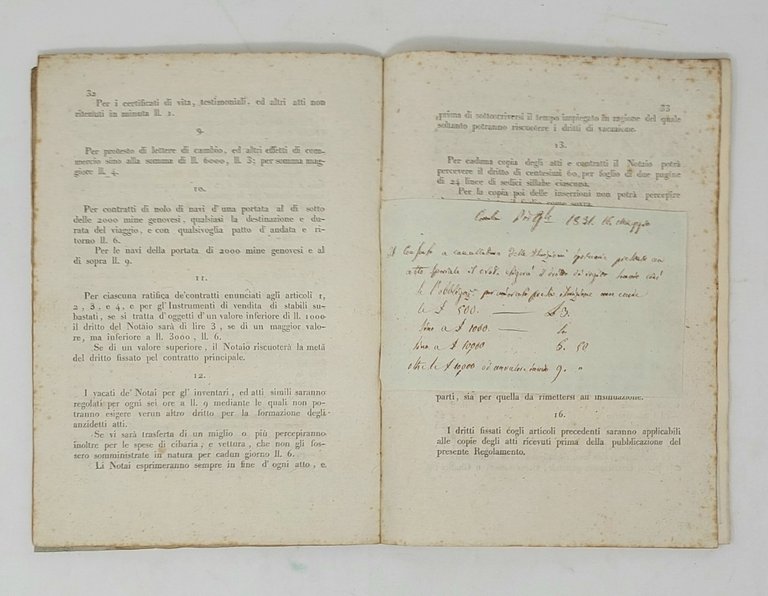 32
Per i certificati di vita, testimoniali, ed altri atti non
ritenuti in minuta ll. 2.
9.
Per protesto di lettere di cambio, ed altri effetti di com-
mercio sino alla somma di ll. 6000, ll. 3; per somma mag-
giore ll. 4.
10.
Per contratti di nolo di navi d'una portata al di sotto
delle 2000 mine genovesi, qualsiasi la destinazione e du-
rata del viaggio, e con qualsivoglia patto d'andata e ri-
torno ll. 6.
Per le navi della portata di 2000 mine genovesi e al
di sopra ll. 9.
11.
Per ciascuna ratifica de'contratti enunciati agli articoli 1,
2, 3, e 4, e per gl'Instrumenti di vendita di stabili su-
bastati, se si tratta d'oggetti d'un valore inferiore di ll. 1000
il dritto del Notaio sarà di lire 3, se di un maggior valo-
re, ma inferiore a ll. 3000, ll. 6.
Se di un valore superiore, il Notaio riscuoterà la metà
del dritto fissato pel contratto principale.
12.
I vacati de' Notai per gl' inventari, ed atti simili saranno
regolati per ogni sei ore a ll. 9 mediante le quali non po-
tranno esigere verun altro dritto per la formazione degli
anzidetti atti.
Se vi sarà trasferta di un miglio o più percepiranno
inoltre per le spese di cibaria, e vettura, che non gli fos-
sero somministrate in natura per cadun giorno ll. 6.
Li Notai esprimeranno sempre in fine d'ogni atto, e
33
prima di sottoscriversi il tempo impiegato in ragione del quale
soltanto potranno riscuotere i dritti di vacazione.
13.
Per caduna copia degli atti e contratti il Notaio potrà
percevere il dritto di centesimi 60, per foglio di due pagine
di 24 linee di sedici sillabe ciascuna.
Per la copia poi delle inserzioni non potrà percepire
1831. 16. maggio
le £ 500. £ 3.
sino a £ 1000.
sino a £ 10,000 6. 50
oltre le £ 10,000 9. "
parti, sia per quella da rimettersi all'insinuazione.
16.
I dritti fissati cogli articoli precedenti saranno applicabili
alle copie degli atti ricevuti prima della pubblicazione del
presente Regolamento.